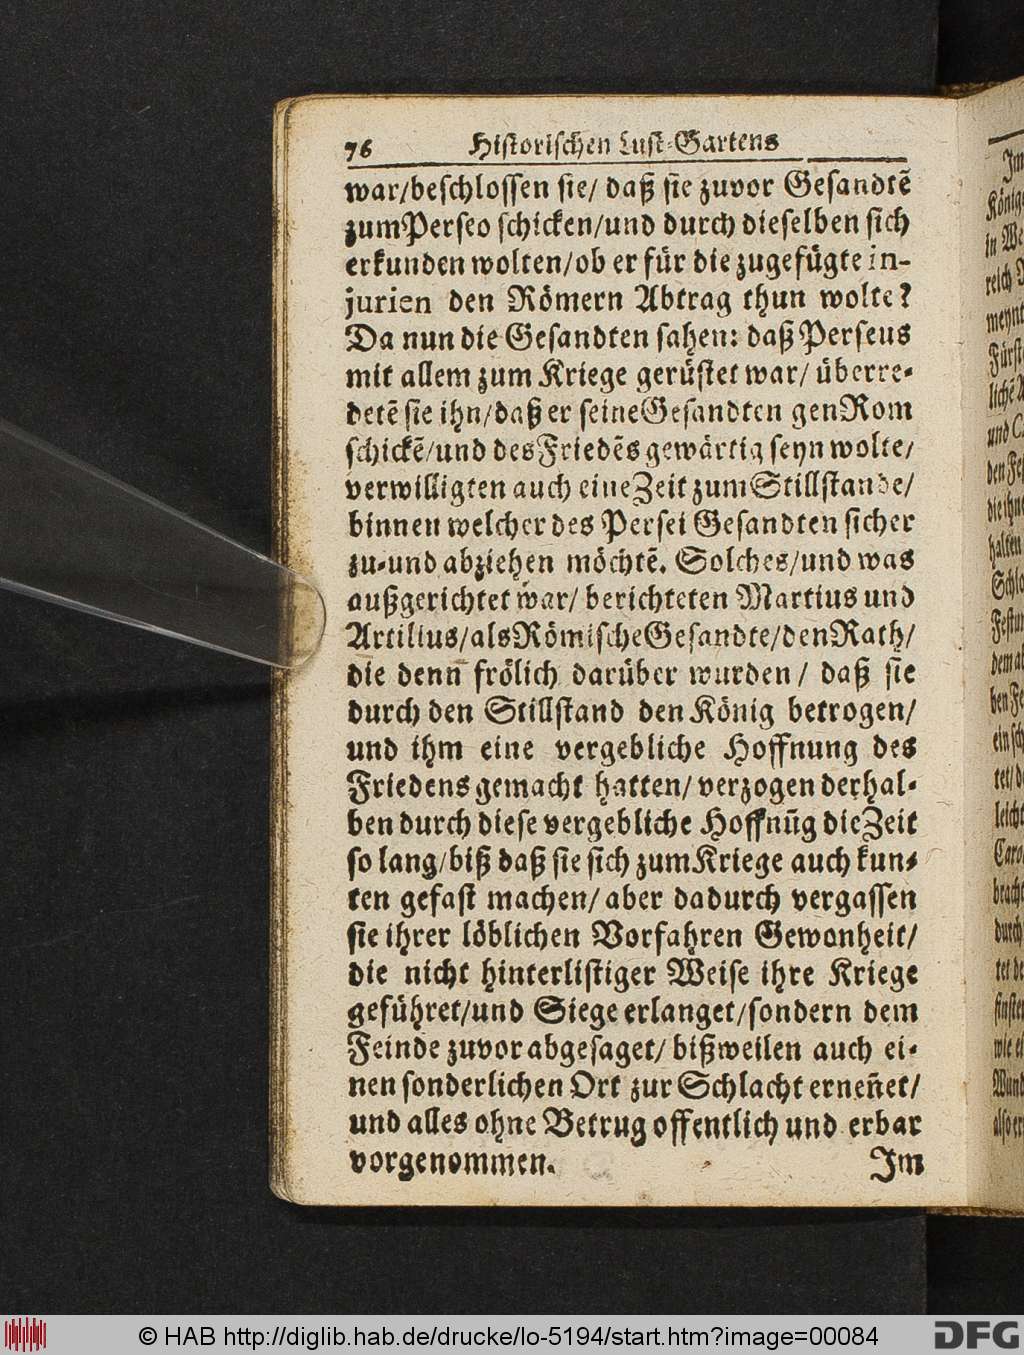 76 Historischen Lust-Gartens
war/beschlossen sie/ daß sie zuvor Gesandtẽ
zum Perseo schicken/und durch dieselben sich
erkunden wolten/ob er für die zugefügte in-
jurien den Römern Abtrag thun wolte?
Da nun die Gesandten sahen: daß Perseus
mit allem zum Kriege gerüstet war/ überre-
detẽ sie ihn/daß er seine Gesandten gen Rom
schickẽ/und des Friedẽs gewärtig seyn wolte/
verwilligten auch eine Zeit zum Stillstande/
binnen welcher des Persei Gesandten sicher
zu-und abziehen möchtẽ. Solches/und was
außgerichtet war/ berichteten Martius und
Artilius/als Römische Gesandte/den Rath/
die denn frölich darüber wurden/ daß sie
durch den Stillstand den König betrogen/
und ihm eine vergebliche Hoffnung des
Friedens gemacht hatten/ verzogen derhal-
ben durch diese vergebliche Hoffnũg die Zeit
so lang/biß daß sie sich zum Kriege auch kun-
ten gefast machen/ aber dadurch vergassen
sie ihrer löblichen Vorfahren Gewonheit/
die nicht hinterlistiger Weise ihre Kriege
geführet/und Siege erlanget/sondern dem
Feinde zuvor abgesaget/ bißweilen auch ei-
nen sonderlichen Ort zur Schlacht erneñet/
und alles ohne Betrug offentlich und erbar
vorgenommen. Im
Im
König
in We
reich
meynt
Fürst
lichẽ
und C
den Fe
die ihn
halten
Schlo
Festun
dem a
ben Fe
ein sch
tet/d
leicht
Caro
bracht
durch
tet de
finster
wie ei
Wund
also er
© HAB http://diglib.hab.de/drucke/lo-5194/start.htm?image=00084
DFG